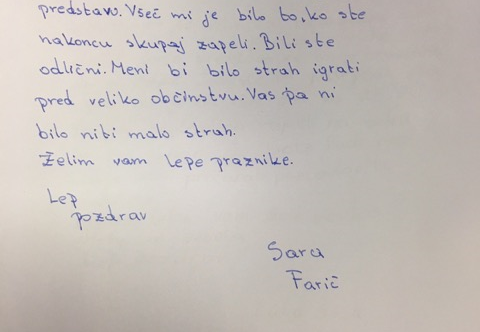 predstav. Všeč mi je bilo to, ko ste
nakoncu skupaj zapeli. Bili ste
odlični. Meni bi bilo strah igrati
pred veliko občinstvu. Vas pa ni
bilo niti malo strah.
Želim vam lepe praznike.
Lep
pozdrav
Sara
Farič